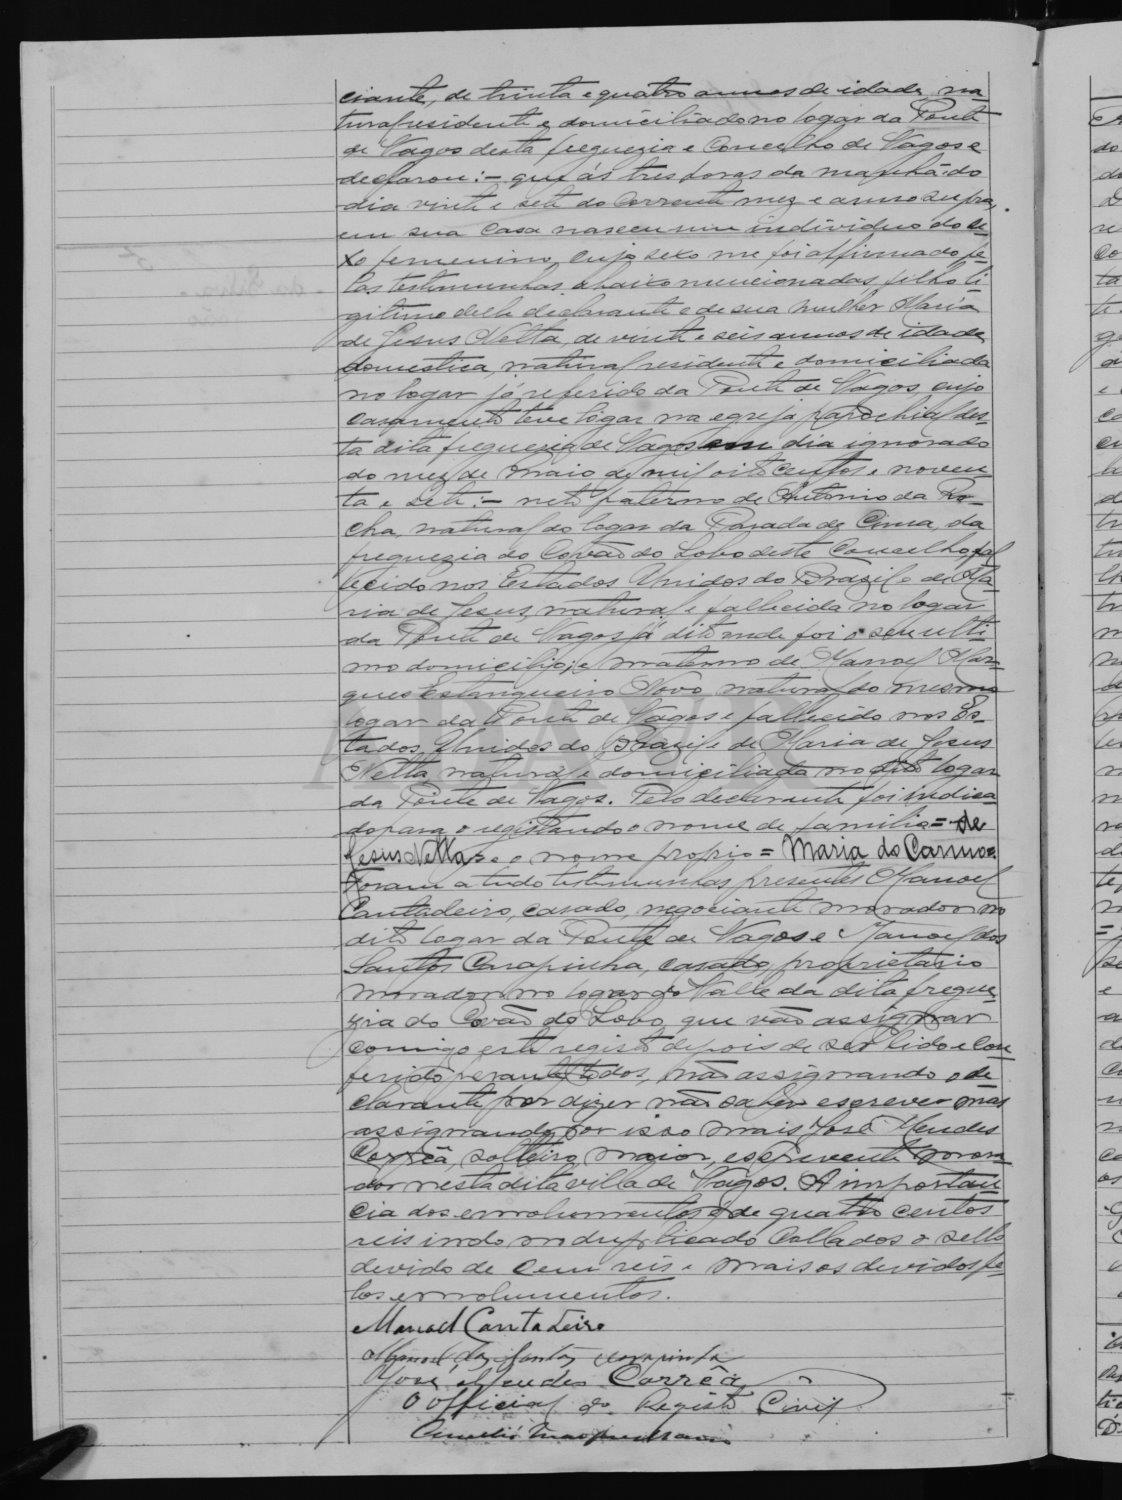 ciante, de trinta e quatro annos de idade, na-
tural residente e domiciliado no logar da Ponte
de Vagos desta freguezia e Concelho de Vagos e
declarou:- que ás tres horas da manhã do
dia vinte e sete do corrente mez e anno supra,
em sua casa nasceu um individuo do se-
xo femenino, cujo sexo me foi affirmado pe-
las testimunhas abaixo mencionadas, filho li-
gitimo delle declarante e de sua mulher Maria
de Jesus Netta, de vinte e seis annos de idade,
domestica, natural residente e domiciliada
no logar já referido da Ponte de Vagos, cujo
casamento teve lógar na egreja parochial des-
ta dita freguezia de Vagos em dia ignorado
do mez de maio de mil oito centos e noven-
ta e sete:- neto paterno de Antonio da Ro-
cha, natural do logar da Parada de Cima, da
freguezia do Covão do Lobo deste Concelho, fal
lecido nos Estados Unidos do Brazil e de Ma-
ria de Jesus, natural e fallecida no logar
da Ponte de Vagos já dito onde foi o seu ulti-
mo domicilio; e materno de Manoel Mar-
ques Estanqueiro Novo, natural do mesmo
logar da Ponte de Vagos e fallecido nos Es-
tados Unidos do Brazil e de Maria de Jesus
Netta, natural e domiciliada no dito logar
da Ponte de Vagos. Pelo declarante foi indica-
do para o registando o nome de familia = de
Jesus Netta = e o nome proprio = Maria do Carmo =.
Foram a tudo testimunhas presentes Manoel
Cantadeiro, casado, negociante morador no
dito logar da Ponte de Vagos e Manoel dos
Santos Carapinha, casado, proprietario
morador no logar do Valle da dita fregue-
zia do Covão do Lobo, que vão assignar
comigo este registo depois de ser lido e con-
ferido perante todos, não assignando o de-
clarante por dizer não saber escrever mas
assignando por isso mais José Mendes
Corrêa, solteiro, maior, escrevente mora-
dor nesta dita villa de Vagos. A importan-
cia dos emolumentos é de quatro centos
reis indo no duplicado collados o sello
devido de cem reis e mais os devidos pe-
los emolumentos.
Manoel Cantadeiro
Manoel dos Santos Carapinha
José Mendes Corrêa
O official do Registo Civil
ADAVR